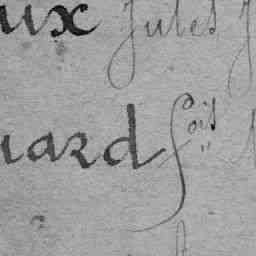 ux Jules J
uard fois